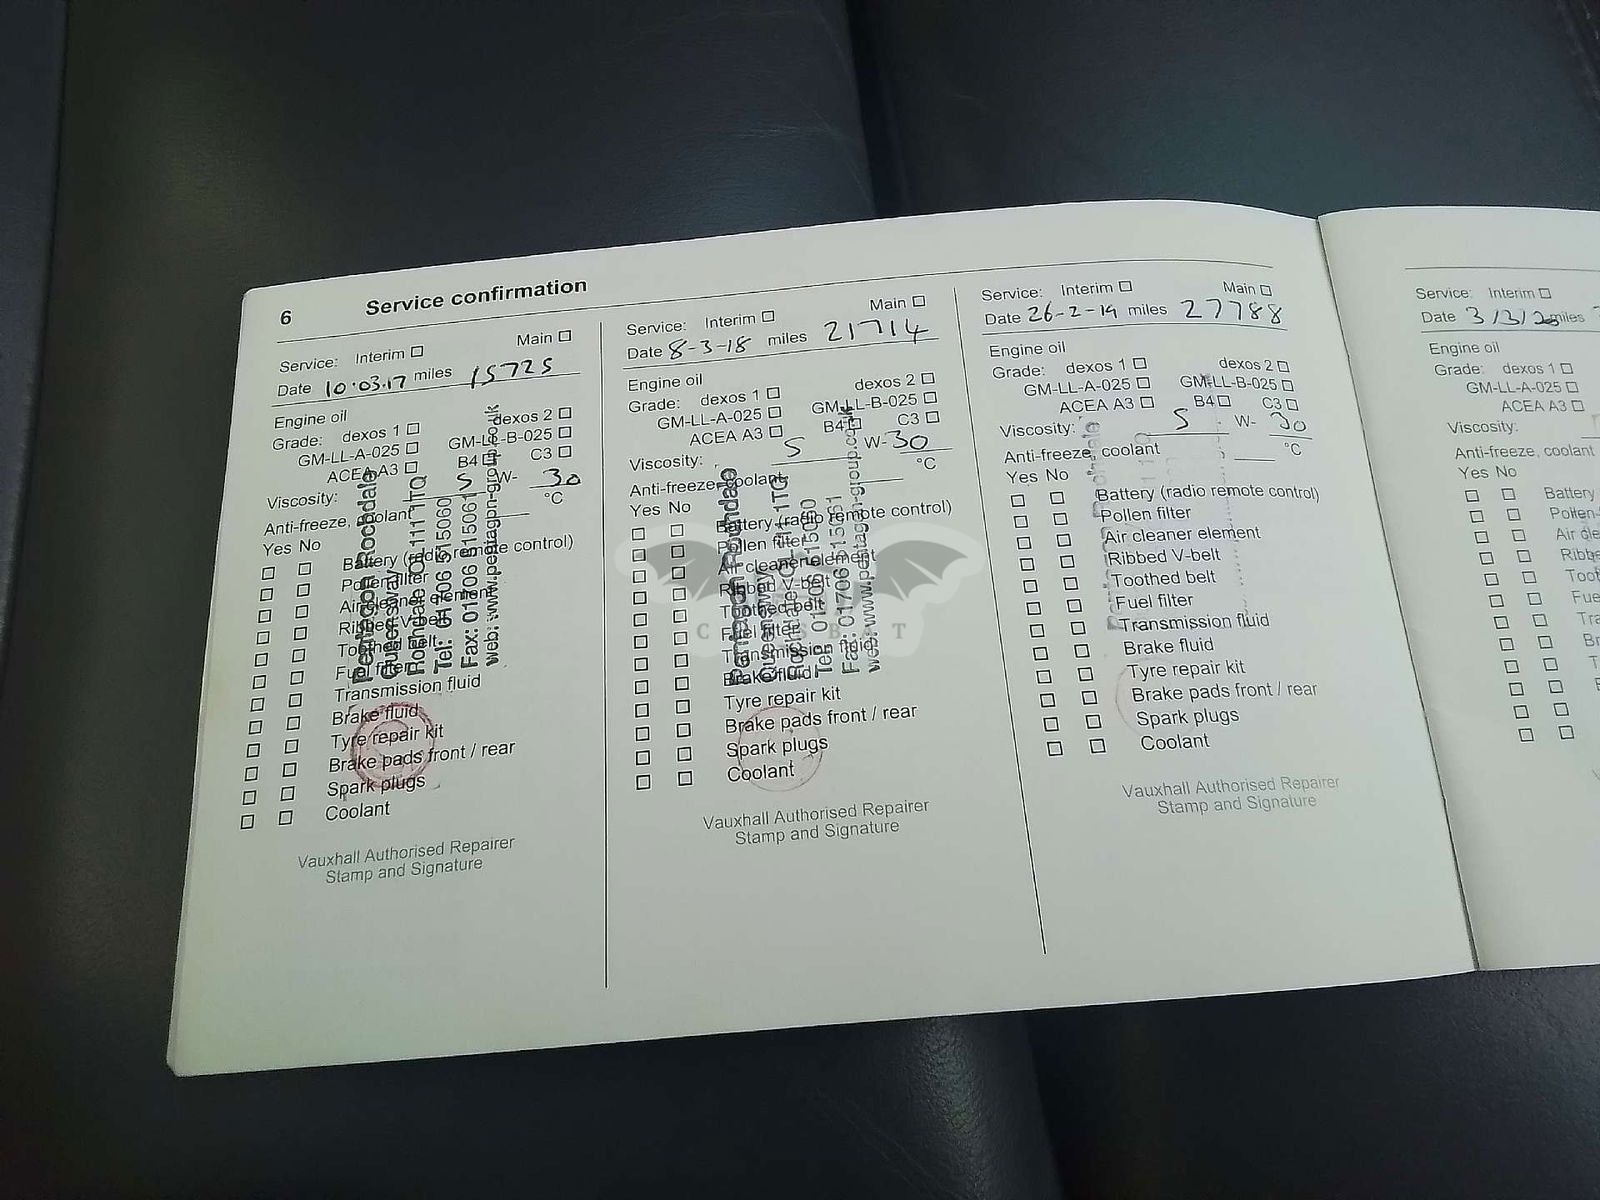 6 Service confirmation
Service: Interim Main
Date 10.03.17 miles 15725
Engine oil
Grade: dexos 1 dexos 2
GM-LL-A-025 GM-LL-B-025
ACEA A3 B4 C3
Viscosity: 5 W- 30
Anti-freeze, coolant °C
Yes No
Battery (radio remote control)
Pollen filter
Air cleaner element
Ribbed V-belt
Toothed belt
Fuel filter
Transmission fluid
Brake fluid
Tyre repair kit
Brake pads front / rear
Spark plugs
Coolant
Pentagon Rochdale
Queensway
Rochdale OL11 1TQ
Tel: 01706 515060
Fax: 01706 515061
web: www.pentagon-group.co.uk
Vauxhall Authorised Repairer
Stamp and Signature
Service: Interim Main
Date 8-3-18 miles 21714
Engine oil
Grade: dexos 1 dexos 2
GM-LL-A-025 GM-LL-B-025
ACEA A3 B4 C3
Viscosity: 5 W- 30
Anti-freeze, coolant °C
Yes No
Battery (radio remote control)
Pollen filter
Air cleaner element
Ribbed V-belt
Toothed belt
Fuel filter
Transmission fluid
Brake fluid
Tyre repair kit
Brake pads front / rear
Spark plugs
Coolant
Pentagon Rochdale
Queensway
Rochdale OL11 1TQ
Tel: 01706 515060
Fax: 01706 515061
web: www.pentagon-group.co.uk
Vauxhall Authorised Repairer
Stamp and Signature
Service: Interim Main
Date 26-2-19 miles 27788
Engine oil
Grade: dexos 1 dexos 2
GM-LL-A-025 GM-LL-B-025
ACEA A3 B4 C3
Viscosity: 5 W- 30
Anti-freeze, coolant °C
Yes No
Battery (radio remote control)
Pollen filter
Air cleaner element
Ribbed V-belt
Toothed belt
Fuel filter
Transmission fluid
Brake fluid
Tyre repair kit
Brake pads front / rear
Spark plugs
Coolant
Vauxhall Authorised Repairer
Stamp and Signature
Service: Interim
Date 3/3/20 miles
Engine oil
Grade: dexos 1
GM-LL-A-025
ACEA A3
Viscosity:
Anti-freeze, coolant
Yes No
Battery
Pollen